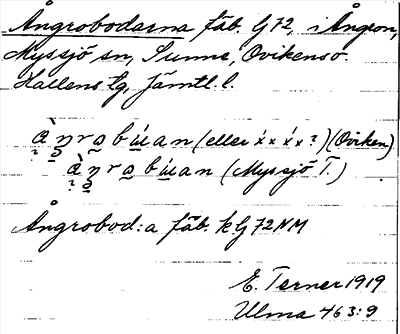 Ångrobodarna fäb. G 72, i Ångron,
Myssjö sn, Sunne, Ovikens o.
Hallens tg, Jämtl. l.
à̀ŋrabúan (eller x́xx́x?) (Oviken)
à̀ŋrabúan (Myssjö T.)
Ångrobod:a fäb. kG 72 NM
E. Terner 1919
Ulma 463:9